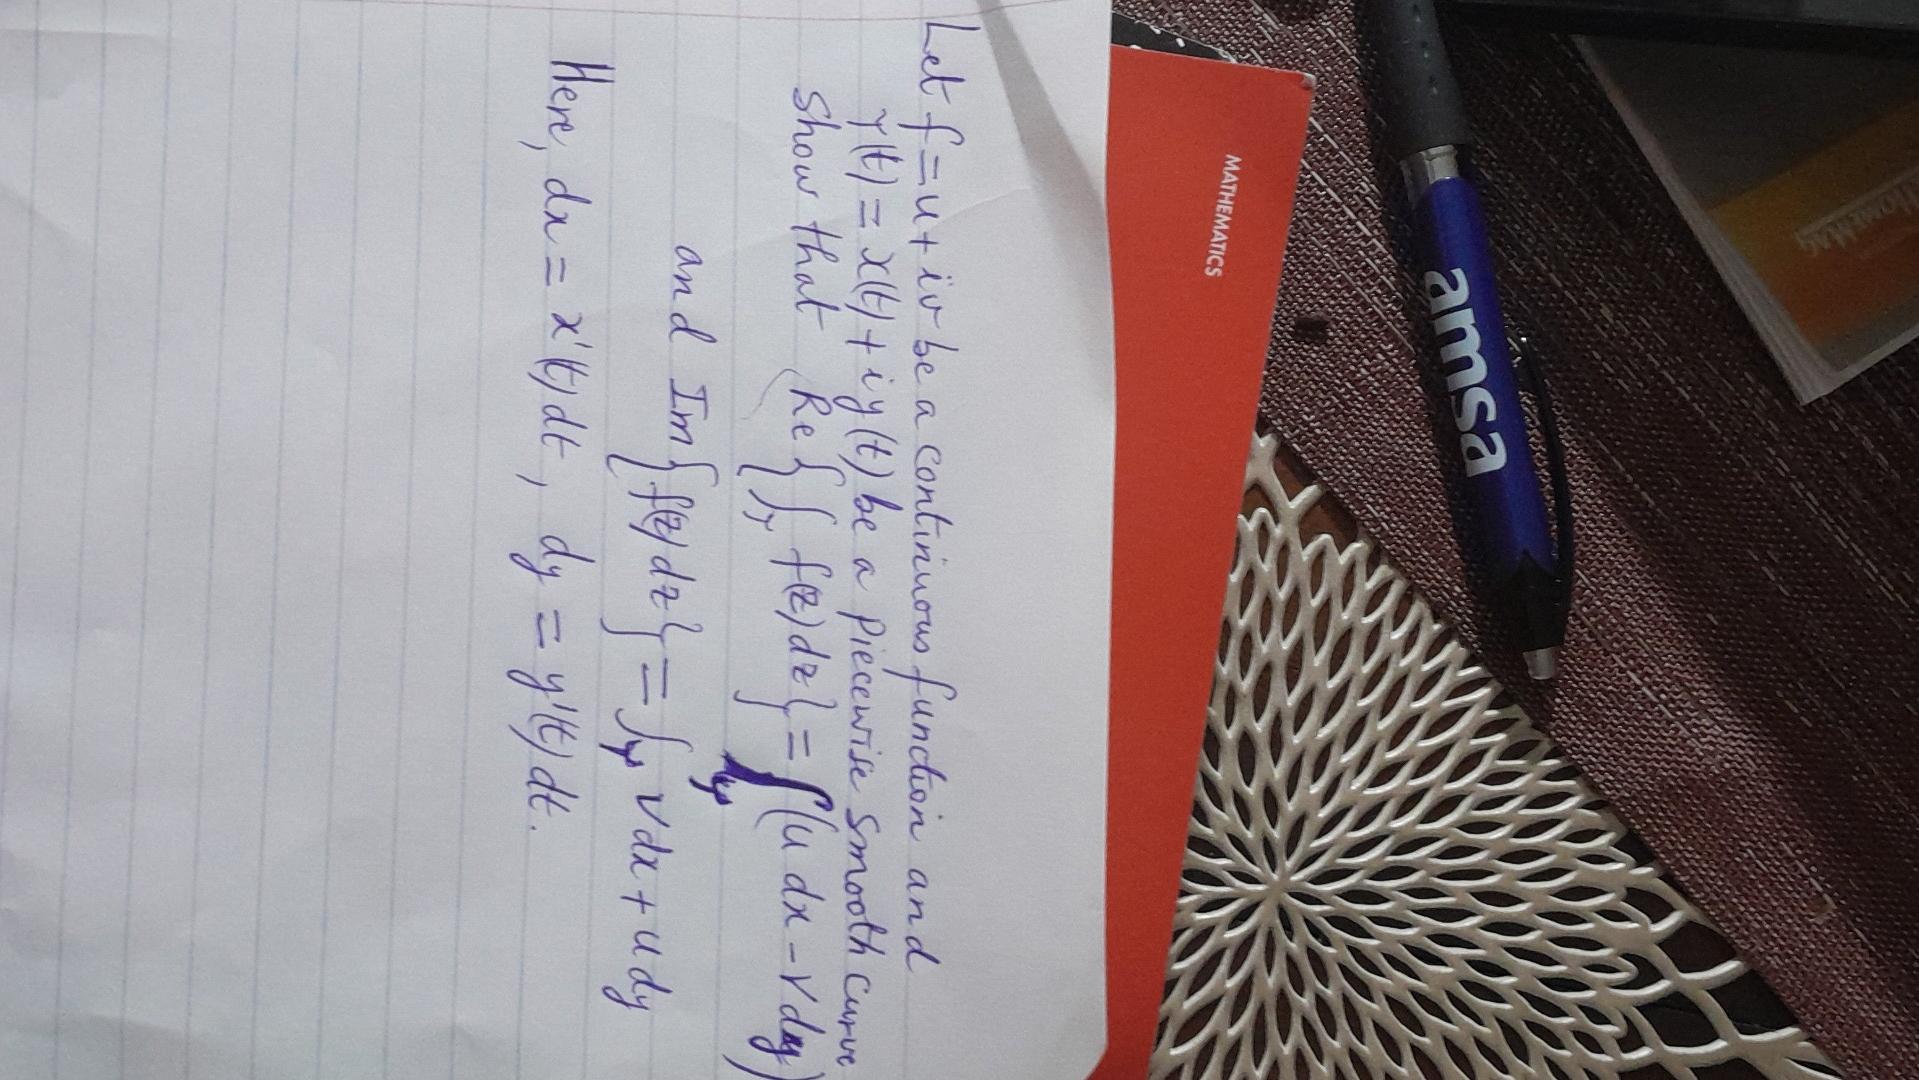 Let f = u + iv be a continuous function and
γ(t) = x(t) + iy(t) be a piecewise smooth curve
Show that Re{∫γ f(z) dz} = ∫γ (u dx - v dy)
and Im{∫ f(z) dz} = ∫γ v dx + u dy
Here, dx = x'(t) dt, dy = y'(t) dt.
MATHEMATICS
amsa